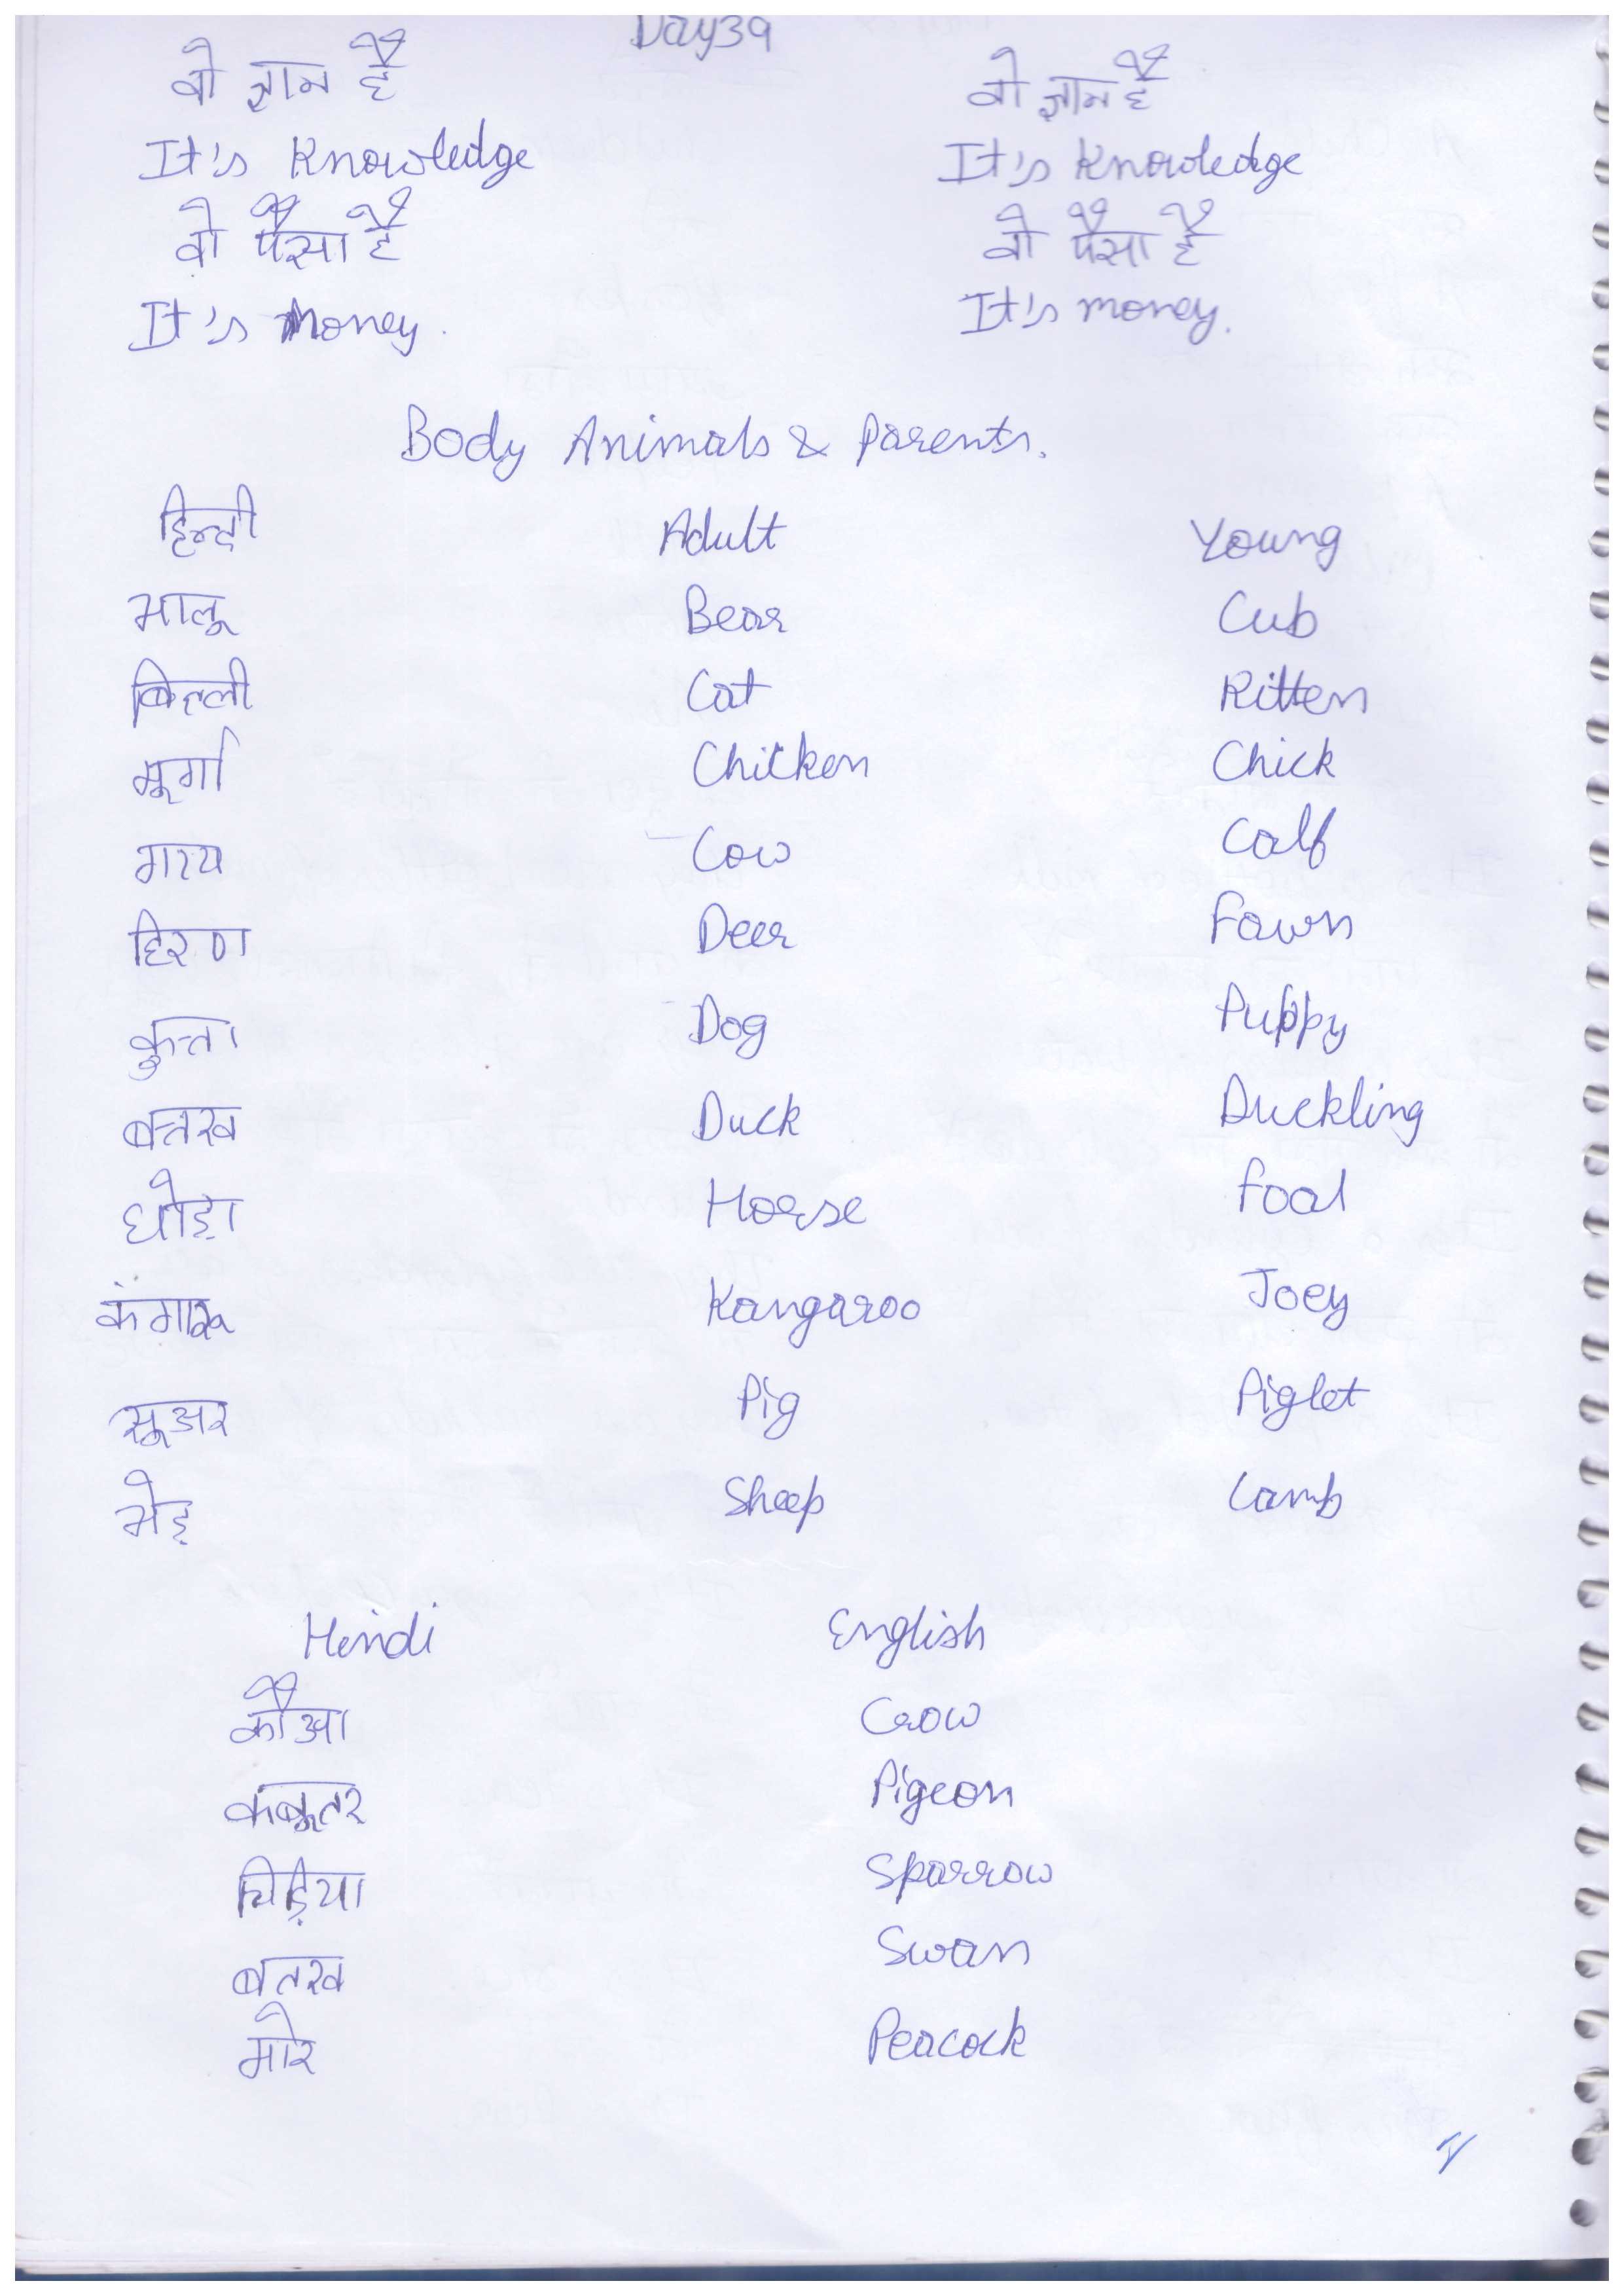 Day 39
वो ज्ञान है वो ज्ञान है
It's Knowledge It's Knowledge
वो पैसा है वो पैसा है
It's Money. It's money.
Body Animals & Parents.
हिन्दी Adult Young
भालू Bear Cub
बिल्ली Cat Kitten
मूर्गा Chicken Chick
गाय Cow Calf
हिरण Deer Fawn
कुत्ता Dog Puppy
बत्तख Duck Duckling
घोड़ा Horse Foal
कंगारू Kangaroo Joey
सूअर Pig Piglet
भेड़ Sheep Lamb
Hindi English
कौआ Crow
कबूतर Pigeon
चिड़िया Sparrow
बतख Swan
मोर Peacock